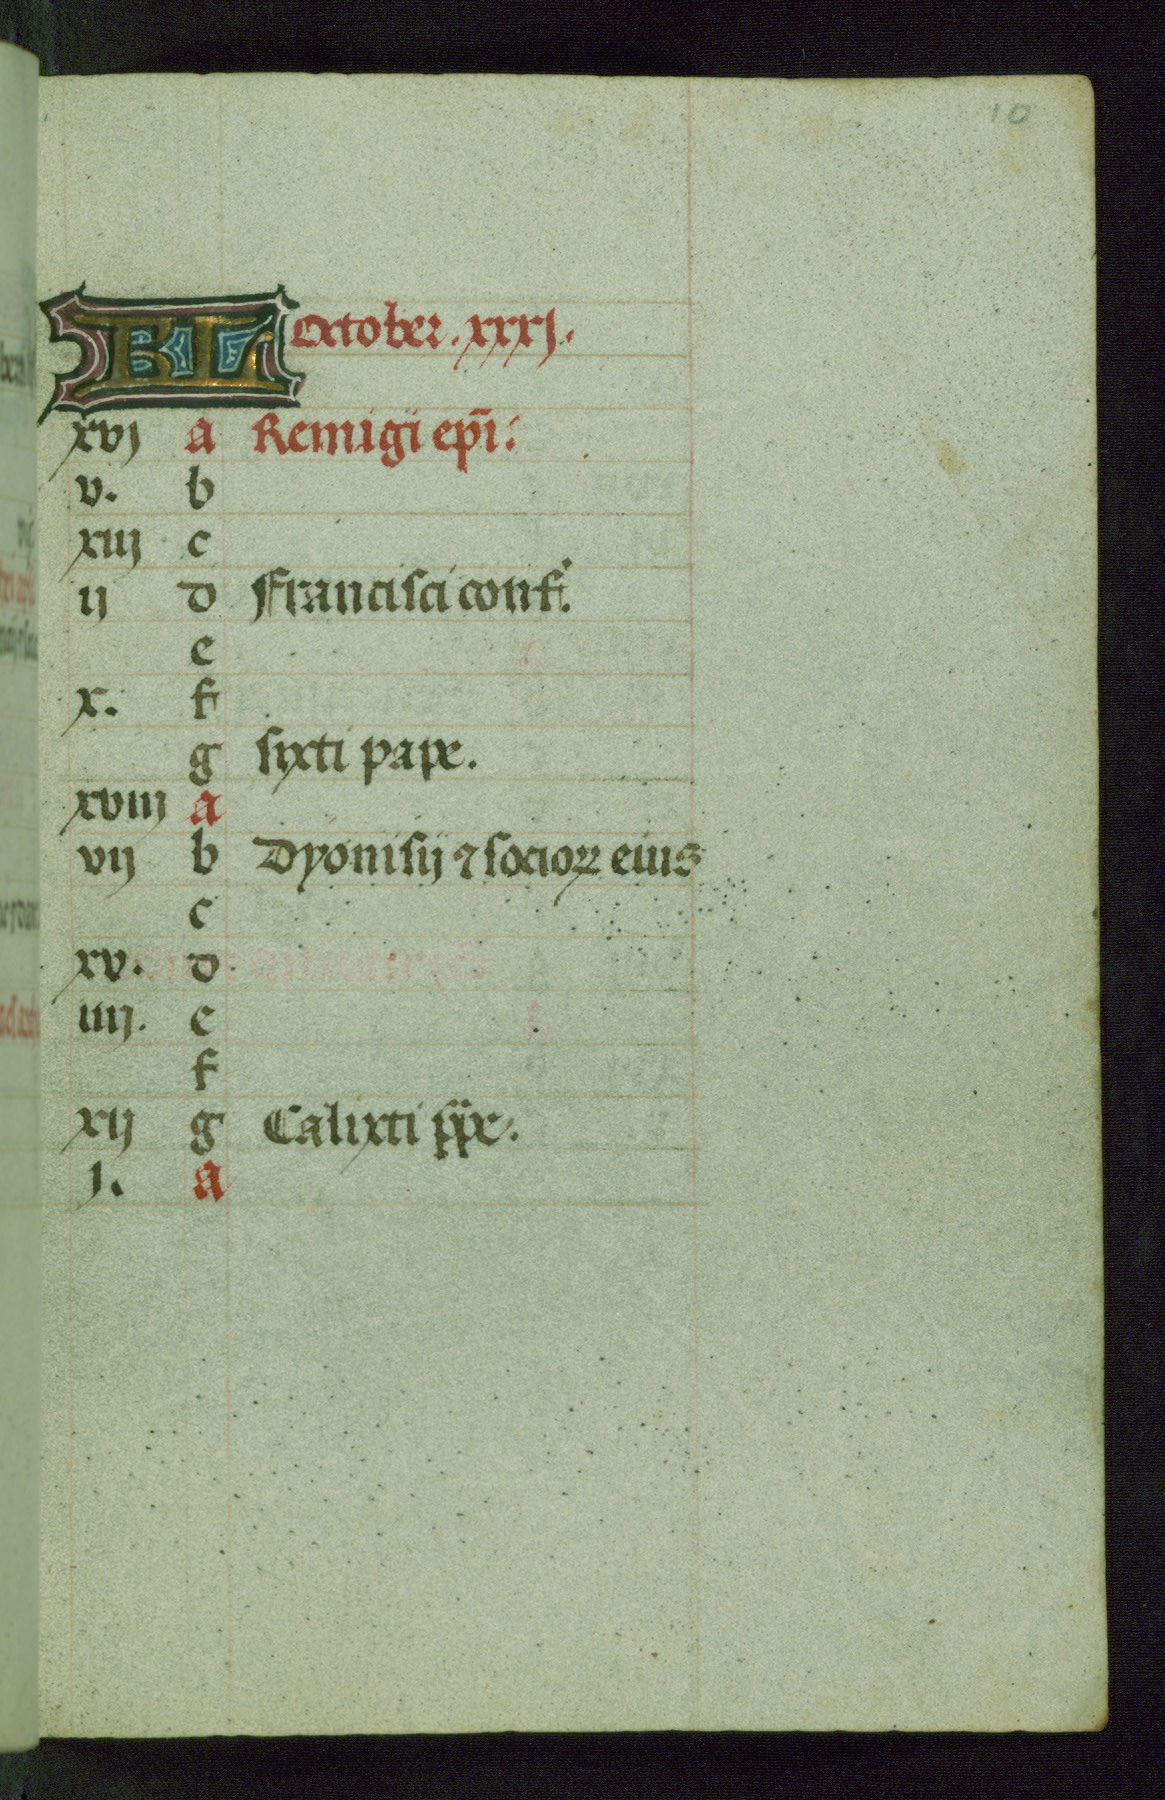 10
KL October .xxxj.
xvj a Remigii ep̄i:
v. b
xiij c
ij d Francisci conf.
e
x. f
g sixti pape.
xviij a
vij b Dyonisij ⁊ socioꝝ eius
c
xv. d
iiij. e
f
xij g Calixti pp̄e.
j. a